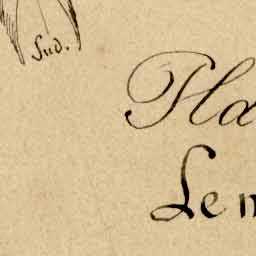 Sud.
Pla
Len